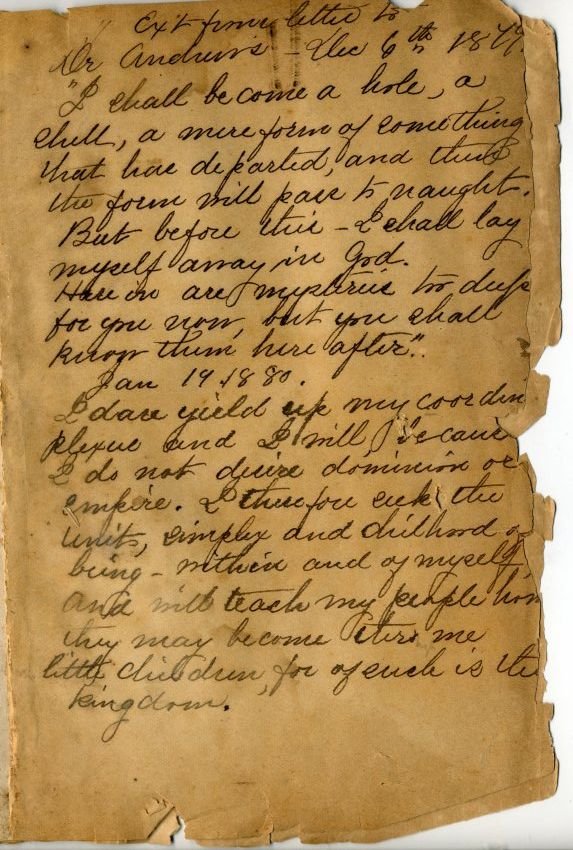 Ext from letter to
Dr Andrews - Dec 6th 187
"I shall become a hole, a
shell, a mere form of something
that has departed, and then
the form will pass to naught.
But before this - I shall lay
myself away in God.
Here in are mysteries too deep
for you now, but you shall
know them here after".
Jan 19. 1880.
I dare yield up my coordin
plexus and I will, because
I do not desire dominion or
empire. I therefore seek the
units, simplex and childhood o
being - within and of myself
and will teach my people how
they may become me
little children, for of such is the
kingdom.